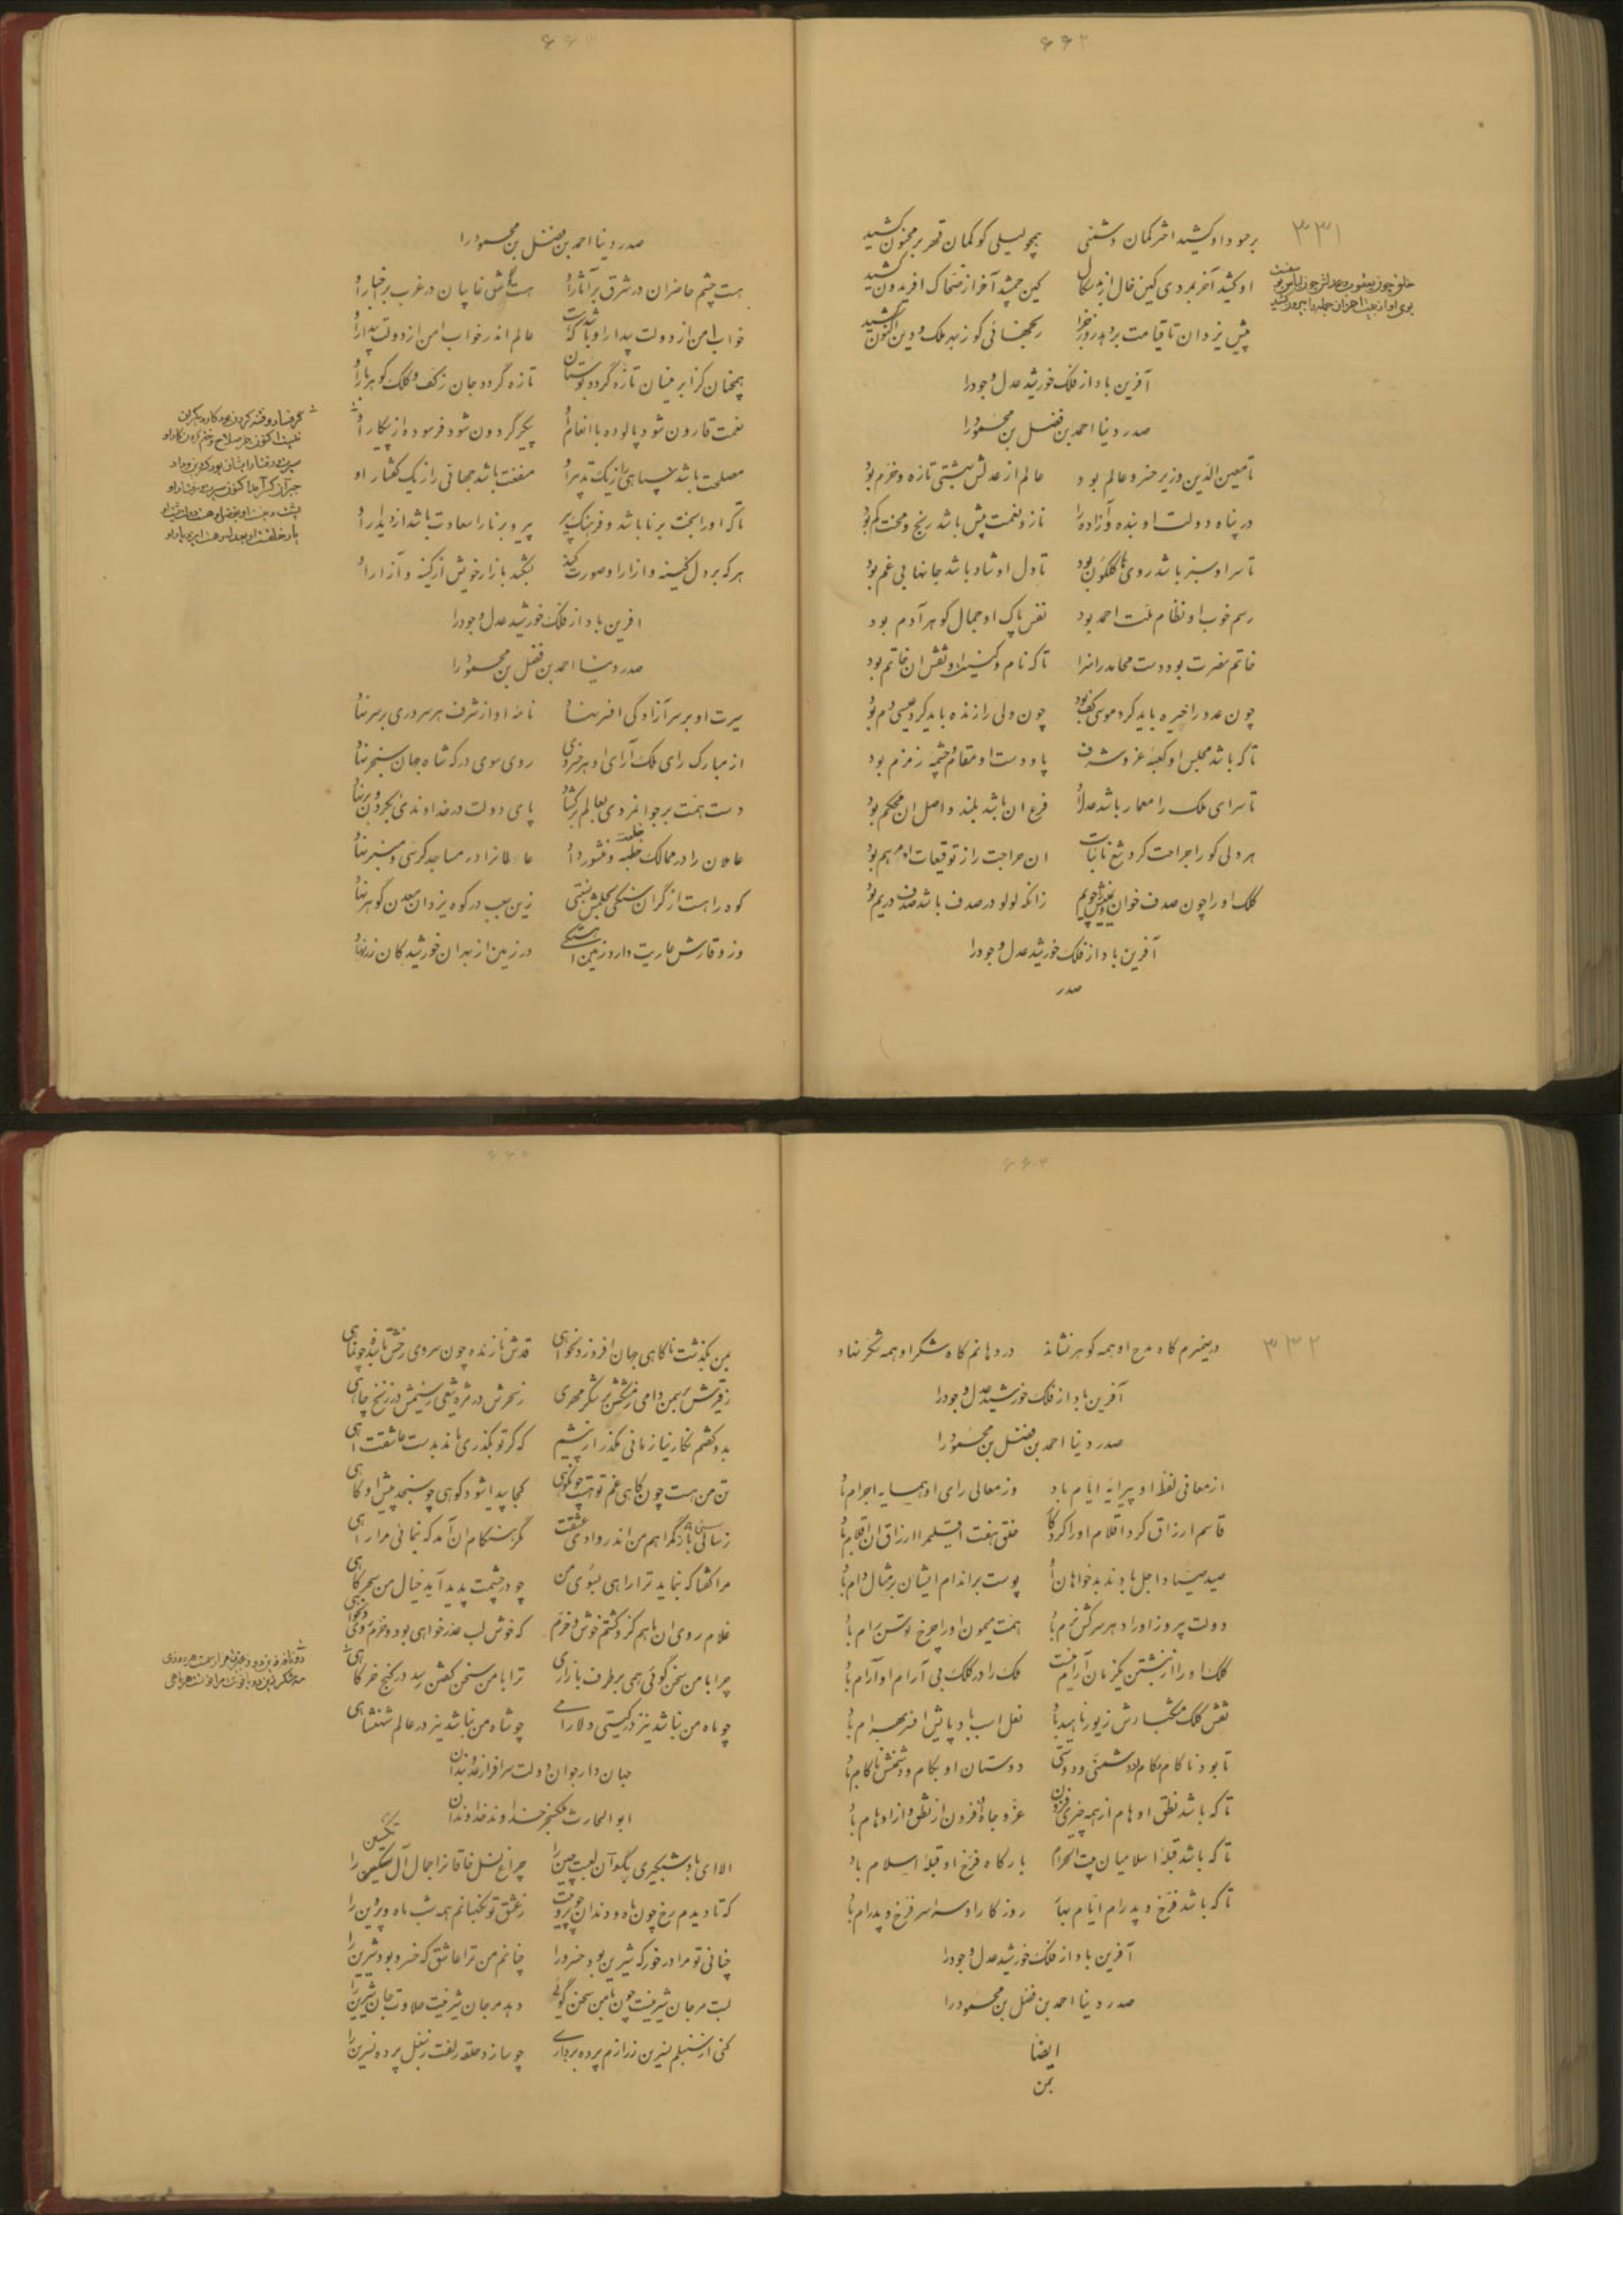 ۶۶۲
۳۳۱
بر حسود او کشید اختر کمان دشمنی همچو لیلی کو کمان قهر بر مجنون کشید
او کشید آخر بمردی کین خال از بدسگال کین جمشید آخر از ضحاک افریدون کشید
پیش یزدان تا قیامت بردهد روز جزا رنجهائی کو ز بهر ملک و دین اکنون کشید
آفرین باد از فلک خورشید عدل و جود را
صدر دنیا احمد بن فضل بن محمود را
تا معین الدین وزیر خسرو عالم بود عالم از عدلش بهشتی تازه و خرم بود
در پناه دولت او بنده و آزاده را ناز و نعمت بیش باشد رنج و محنت کم بود
تا سر او سبز باشد رویها گلگون بود تا دل او شاد باشد جانها بی غم بود
رسم خوب او نظام ملت احمد بود نفس پاک او جمال گوهر آدم بود
خاتم نصرت بود دست محامد را سزا تا که نام و کنیت او نقش ان خاتم بود
چون عدو را خیره باید کرد موسی کف بود چون ولی را زنده باید کرد عیسی دم بود
تا که باشد مجلس او کعبه عز و شرف پا و دست او مقام و چشمه زمزم بود
تا سرای ملک را معمار باشد عدل او فرع ان باشد بلند و اصل ان محکم بود
هر دلی کو را جراحت کرد تیغ نائبات ان جراحت را ز توقیعات او مرهم بود
کلک او را چون صدف خوان زانکه لولو در صدف باشد صدف در یم بود
آفرین باد از فلک خورشید عدل و جود را
صدر
۶۶۳
صدر دنیا احمد بن فضل بن محمود را
هست چشم حاضران در شرق بر آثار او هست گوش غایبان در غرب بر اخبار او
خواب امن از دولت بیدار او باشد که هست عالم اندر خواب امن از دولت بیدار او
همچنان کز ابر نیسان تازه گردد بوستان تازه گردد جان ز کف و کلک گوهربار او
نعمت قارون شود پالوده با انعام او پیکر گردون شود فرسوده از پیکار او
مصلحت باشد سپاهی را ز یک تدبیر او منفعت باشد جهانی را ز یک گفتار او
تا که او را بخت برنا باشد و فرهنگ پیر پیر و برنا را سعادت باشد از دیدار او
هر که بر دل کینه و ازار او صورت کند بشکند بازار خویش از کینه و آزار او
افرین باد از فلک خورشید عدل و جود را
صدر دنیا احمد بن فضل بن محمود را
سیرت او بر سر آزادگی افسر نهاد نامه او از شرف هر سروری بر سر نهاد
از مبارک رای ملک آرای او هر خسروی روی سوی درگه شاه جهان سنجر نهاد
دست همت بر جوانمردی بعالم برگشاد پای دولت در خداوندی بگردون بر نهاد
عاملان را در ممالک خطبه و منشور داد عالمانرا در مساجد کرسی و منبر نهاد
کوه را هست از گران سنگی بحلمش نسبتی زین سبب در کوه یزدان معدن گوهر نهاد
وز وقارش عاریت دارد زمین آهستگی در زمین از بهر ان خورشید کان زر نهاد
۶۶۴
۳۳۲
در ضمیرم گاه مدح او همه گوهر نشاند در دهانم گاه شکر او همه شکر نهاد
آفرین باد از فلک خورشید عدل و جود را
صدر دنیا احمد بن فضل بن محمود را
از معانی لفظ او پیرایه ایام باد وز معالی رای او همسایه اجرام باد
قاسم ارزاق کرد اقلام او را کردگار خلق هفت اقلیم را ارزاق ان اقلام باد
صید صیاد اجل بادند بدخواهان او پوست بر اندام ایشان بر مثال دام باد
دولت پیروز او را دهر سرکش نرم باد همت میمون او را چرخ توسن رام باد
کلک او را از نبشتن یکزمان آرام نیست ملک را در کلک بی آرام او آرام باد
نقش کلک مشکبارش زیور ناهید باد نعل اسب بادپایش افسر بهرام باد
تا بود ناکام و کام از دشمنی و دوستی دوستان او بکام و دشمنش ناکام باد
تا که باشد نطق و اوهام از همه چیزی فزون عز و جاه او فزون از نطق و از اوهام باد
تا که باشد قبله اسلامیان بیت الحرام بارگاه فرخ او قبله اسلام باد
تا که باشد فرخ و پدرام ایام بهار روزگار او سراسر فرخ و پدرام باد
آفرین باد از فلک خورشید عدل و جود را
صدر دنیا احمد بن فضل بن محمود را
ایضاً
بمن
۶۶۵
بمن بگذشت ناگاهی جهان افروز دلخواهی قدش نازنده چون سروی رخش تابنده چون ماهی
بدو گفتم نگارینا زمانی مگذر ار نشیم که گر تو بگذری ماند بدست عاشقت آهی
تن من هست چون کاهی غم تو هست چون کوهی کجا پیدا شود کوهی چو سنجد پیش او کاهی
مرا گفتا که نماید ترا راهی بسوی من چو در چشمت پدید آید خیال من سحرگاهی
غلام روی ان ماهم کزو گشتم خوش و خرم که خوش لب عذرخواهی بود و خرم روی دلخواهی
چرا با من سخن گوئی همی بر طرف بازاری ترا با من سخن گفتن رسد در کنج خرگاهی
چو ماه من نباشد نیز در گیتی دلارامی چو شاه من نباشد نیز در عالم شهنشاهی
جهاندار جوان دولت سرافراز عدوبندان
ابوالحارث ملک سنجر خداوند خداوندان
الا ای باد شبگیری بگو آن لعبت چین را چراغ نسل خاقانرا جمال آل تکسین را
که تا دیدم رخ چون ماه و دندان چو پروینت ز عشق تو نگهبانم همه شب ماه و پروین را
چنانی تو مرا در خور که شیرین بود خسرو را چنانم من ترا عاشق که خسرو بود شیرین را
لبت مر جان شیرینست چون با من سخن گوئی دهد مر جان شیرینت حلاوت جان شیرین را
چو سازد حلقه زلفت ز سنبل پرده نسرین را